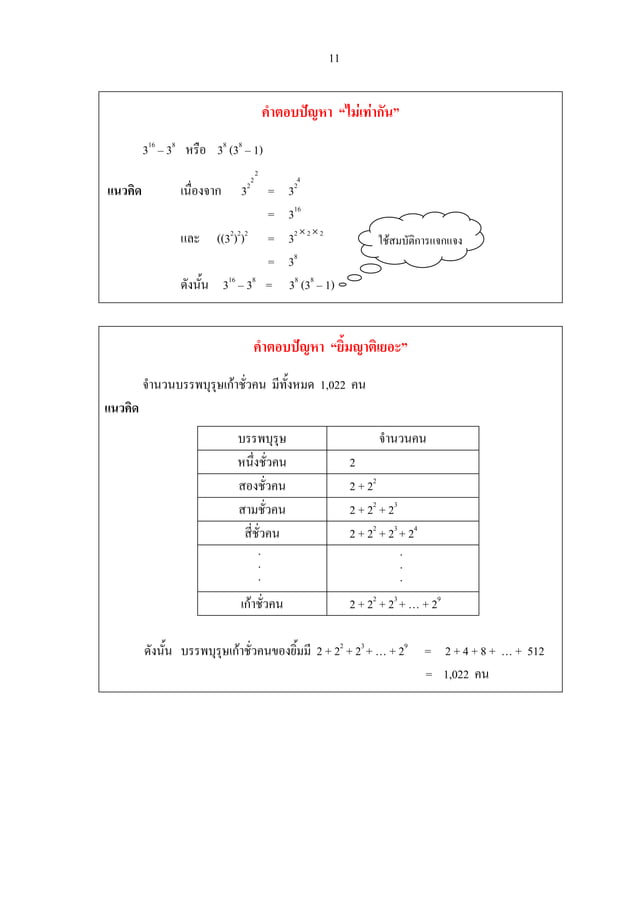 11
คำตอบปัญหา “ไม่เท่ากัน”
3¹⁶ – 3⁸ หรือ 3⁸ (3⁸ – 1)
แนวคิด เนื่องจาก 3^2^2^2 = 3^2^4
= 3¹⁶
และ ((3²)²)² = 3^(2 × 2 × 2)
ใช้สมบัติการแจกแจง
= 3⁸
ดังนั้น 3¹⁶ – 3⁸ = 3⁸ (3⁸ – 1)
คำตอบปัญหา “ยิ้มญาติเยอะ”
จำนวนบรรพบุรุษเก้าชั่วคน มีทั้งหมด 1,022 คน
แนวคิด
บรรพบุรุษ จำนวนคน
หนึ่งชั่วคน 2
สองชั่วคน 2 + 2²
สามชั่วคน 2 + 2² + 2³
สี่ชั่วคน 2 + 2² + 2³ + 2⁴
. .
. .
. .
เก้าชั่วคน 2 + 2² + 2³ + … + 2⁹
ดังนั้น บรรพบุรุษเก้าชั่วคนของยิ้มมี 2 + 2² + 2³ + … + 2⁹ = 2 + 4 + 8 + … + 512
= 1,022 คน